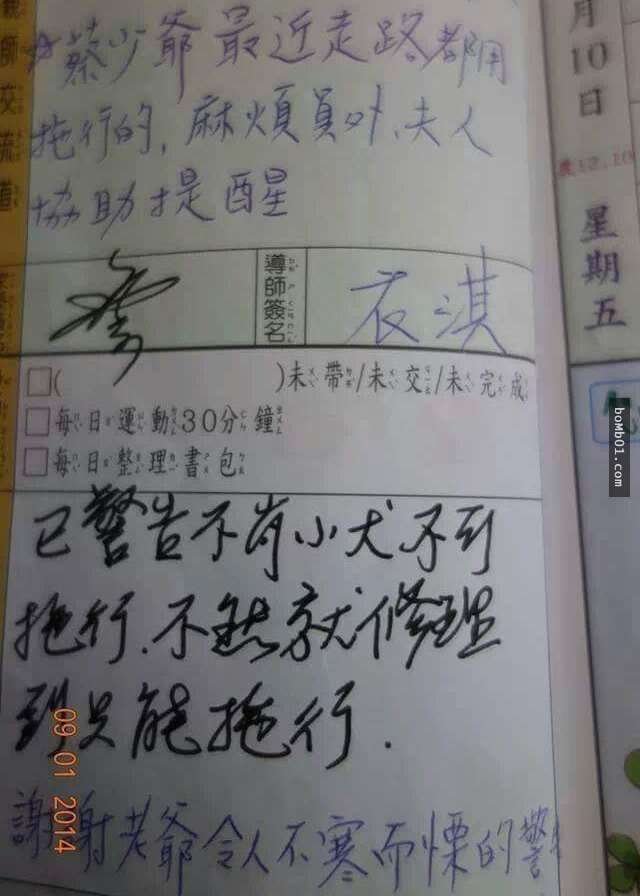 親師交流道
蔡少爺最近走路都用
拖行的,麻煩員外、夫人
協助提醒
導師簽名
衣淇
□( )未帶/未交/未完成
□每日運動30分鐘
□每日整理書包
已警告不肖小犬不列
拖行.不然就修理
到只能拖行.
謝謝老爺令人不寒而慄的警
月10日
星期五
農12.10
09 01 2014
boMb01.com